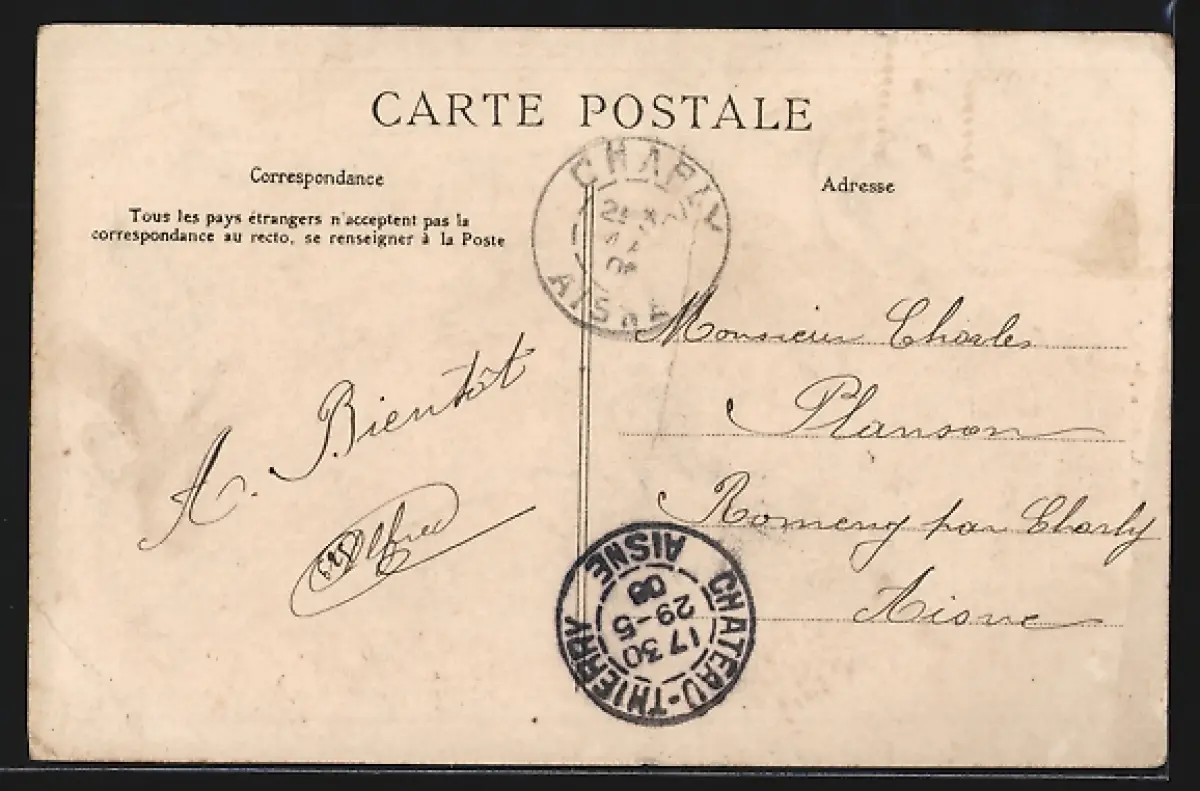 CARTE POSTALE
Correspondance
Tous les pays étrangers n'acceptent pas la
correspondance au recto, se renseigner à la Poste
A. Bientôt
Alfred
Adresse
Monsieur Charles
Planson
Romeny par Charly
Aisne
CHARLY
AISNE
CHATEAU-THIERRY
17 30
29-5
08
AISNE